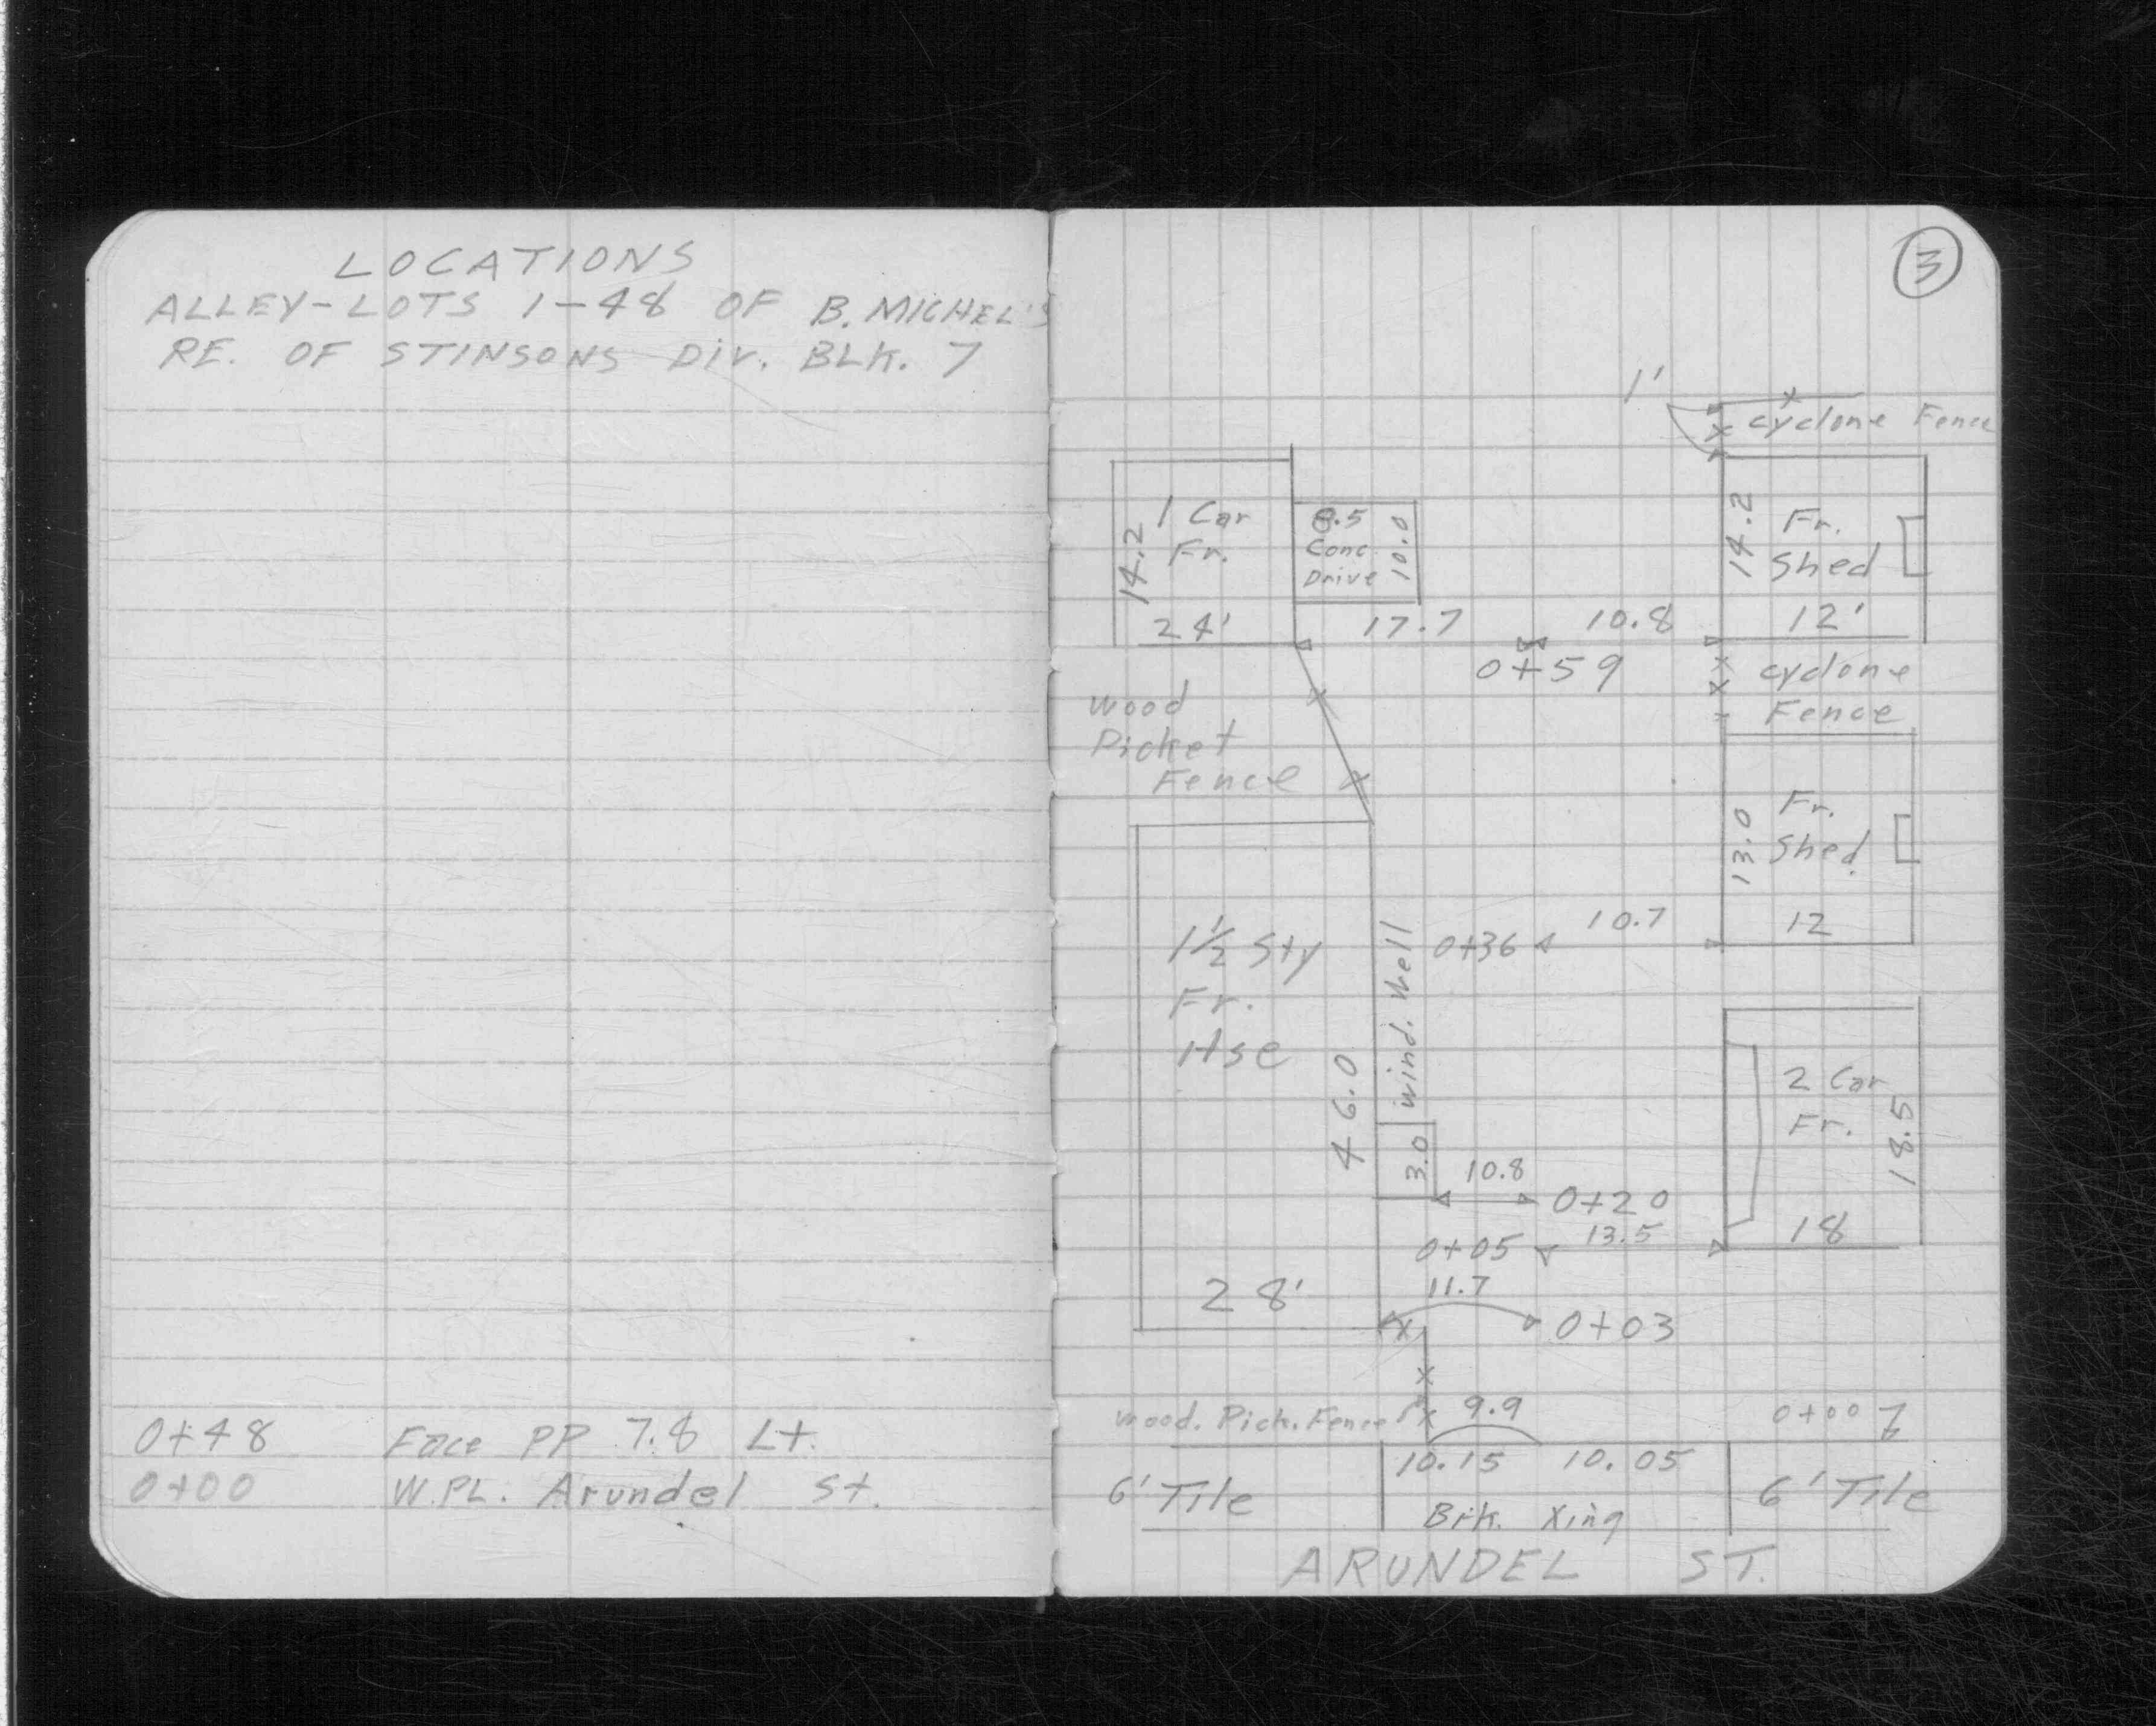 LOCATIONS
ALLEY-LOTS 1-48 OF B. MICHEL'S
RE. OF STINSONS DIV. BLK. 7
0+48 Face PP 7.8 Lt.
0+00 W.PL. Arundel St.
3
1'
cyclone Fence
14.2
1 Car
Fr.
24'
8.5
Conc
Drive
10.0
14.2
Fr.
Shed
12'
17.7
10.8
0+59
cyclone
Fence
Wood
Picket
Fence
13.0
Fr.
Shed
12
1½ Sty
Fr.
Hse
46.0
28'
wind. Well
3.0
0+36
10.7
2 Car
Fr.
18.5
18
10.8
0+20
0+05
13.5
11.7
0+03
Wood. Pick. Fence
9.9
0+00
10.15
10.05
6' Tile
Brk. Xing
6' Tile
ARUNDEL ST.